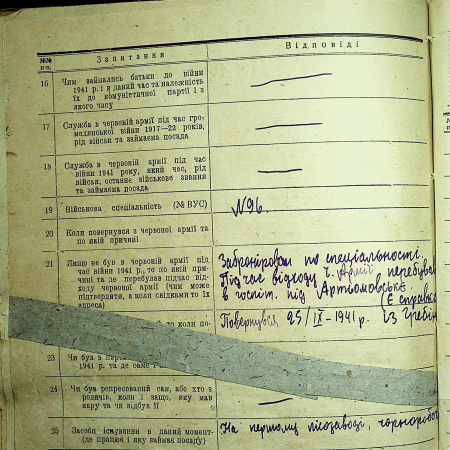 №№ п-п. Запитання Відповіді
16 Чим займались батьки до війни
1941 р. і в даний час та належність
їх до комуністичної партії і з
якого часу
17 Служба в червоній армії під час гро-
мадянської війни 1917—22 років,
рід військ та займаєма посада
18 Служба в червоній армії під час
війни 1941 року, який час, рід
військ, останнє військове звання
та займаєма посада
19 Військова спеціальність (№ ВУС) №96.
20 Коли повернувся з червоної армії та
по якій причині
21 Якщо не був в червоній армії під
час війни 1941 р., то по якій при-
чині та де перебував підчас відхо-
ду червоної армії (чим може
підтвердити, а коли свідками то їх
адреса)
Забронірован по спеціальності.
Під час відходу ч. Армії перебував
в госпіт. під Артіомовськe
(Є справка
то коли по-
Повернувся 25/IX-1941 р. із
23 Чи був в
1941 р. та де саме
24 Чи був репресований сам, або хто з
родичів, коли і защо, яку мав
кару та чи відбув її
25 Засоби існування в даний момент-
(де працює і яку займає посаду)
На першому лісозаводі, чорноробоч